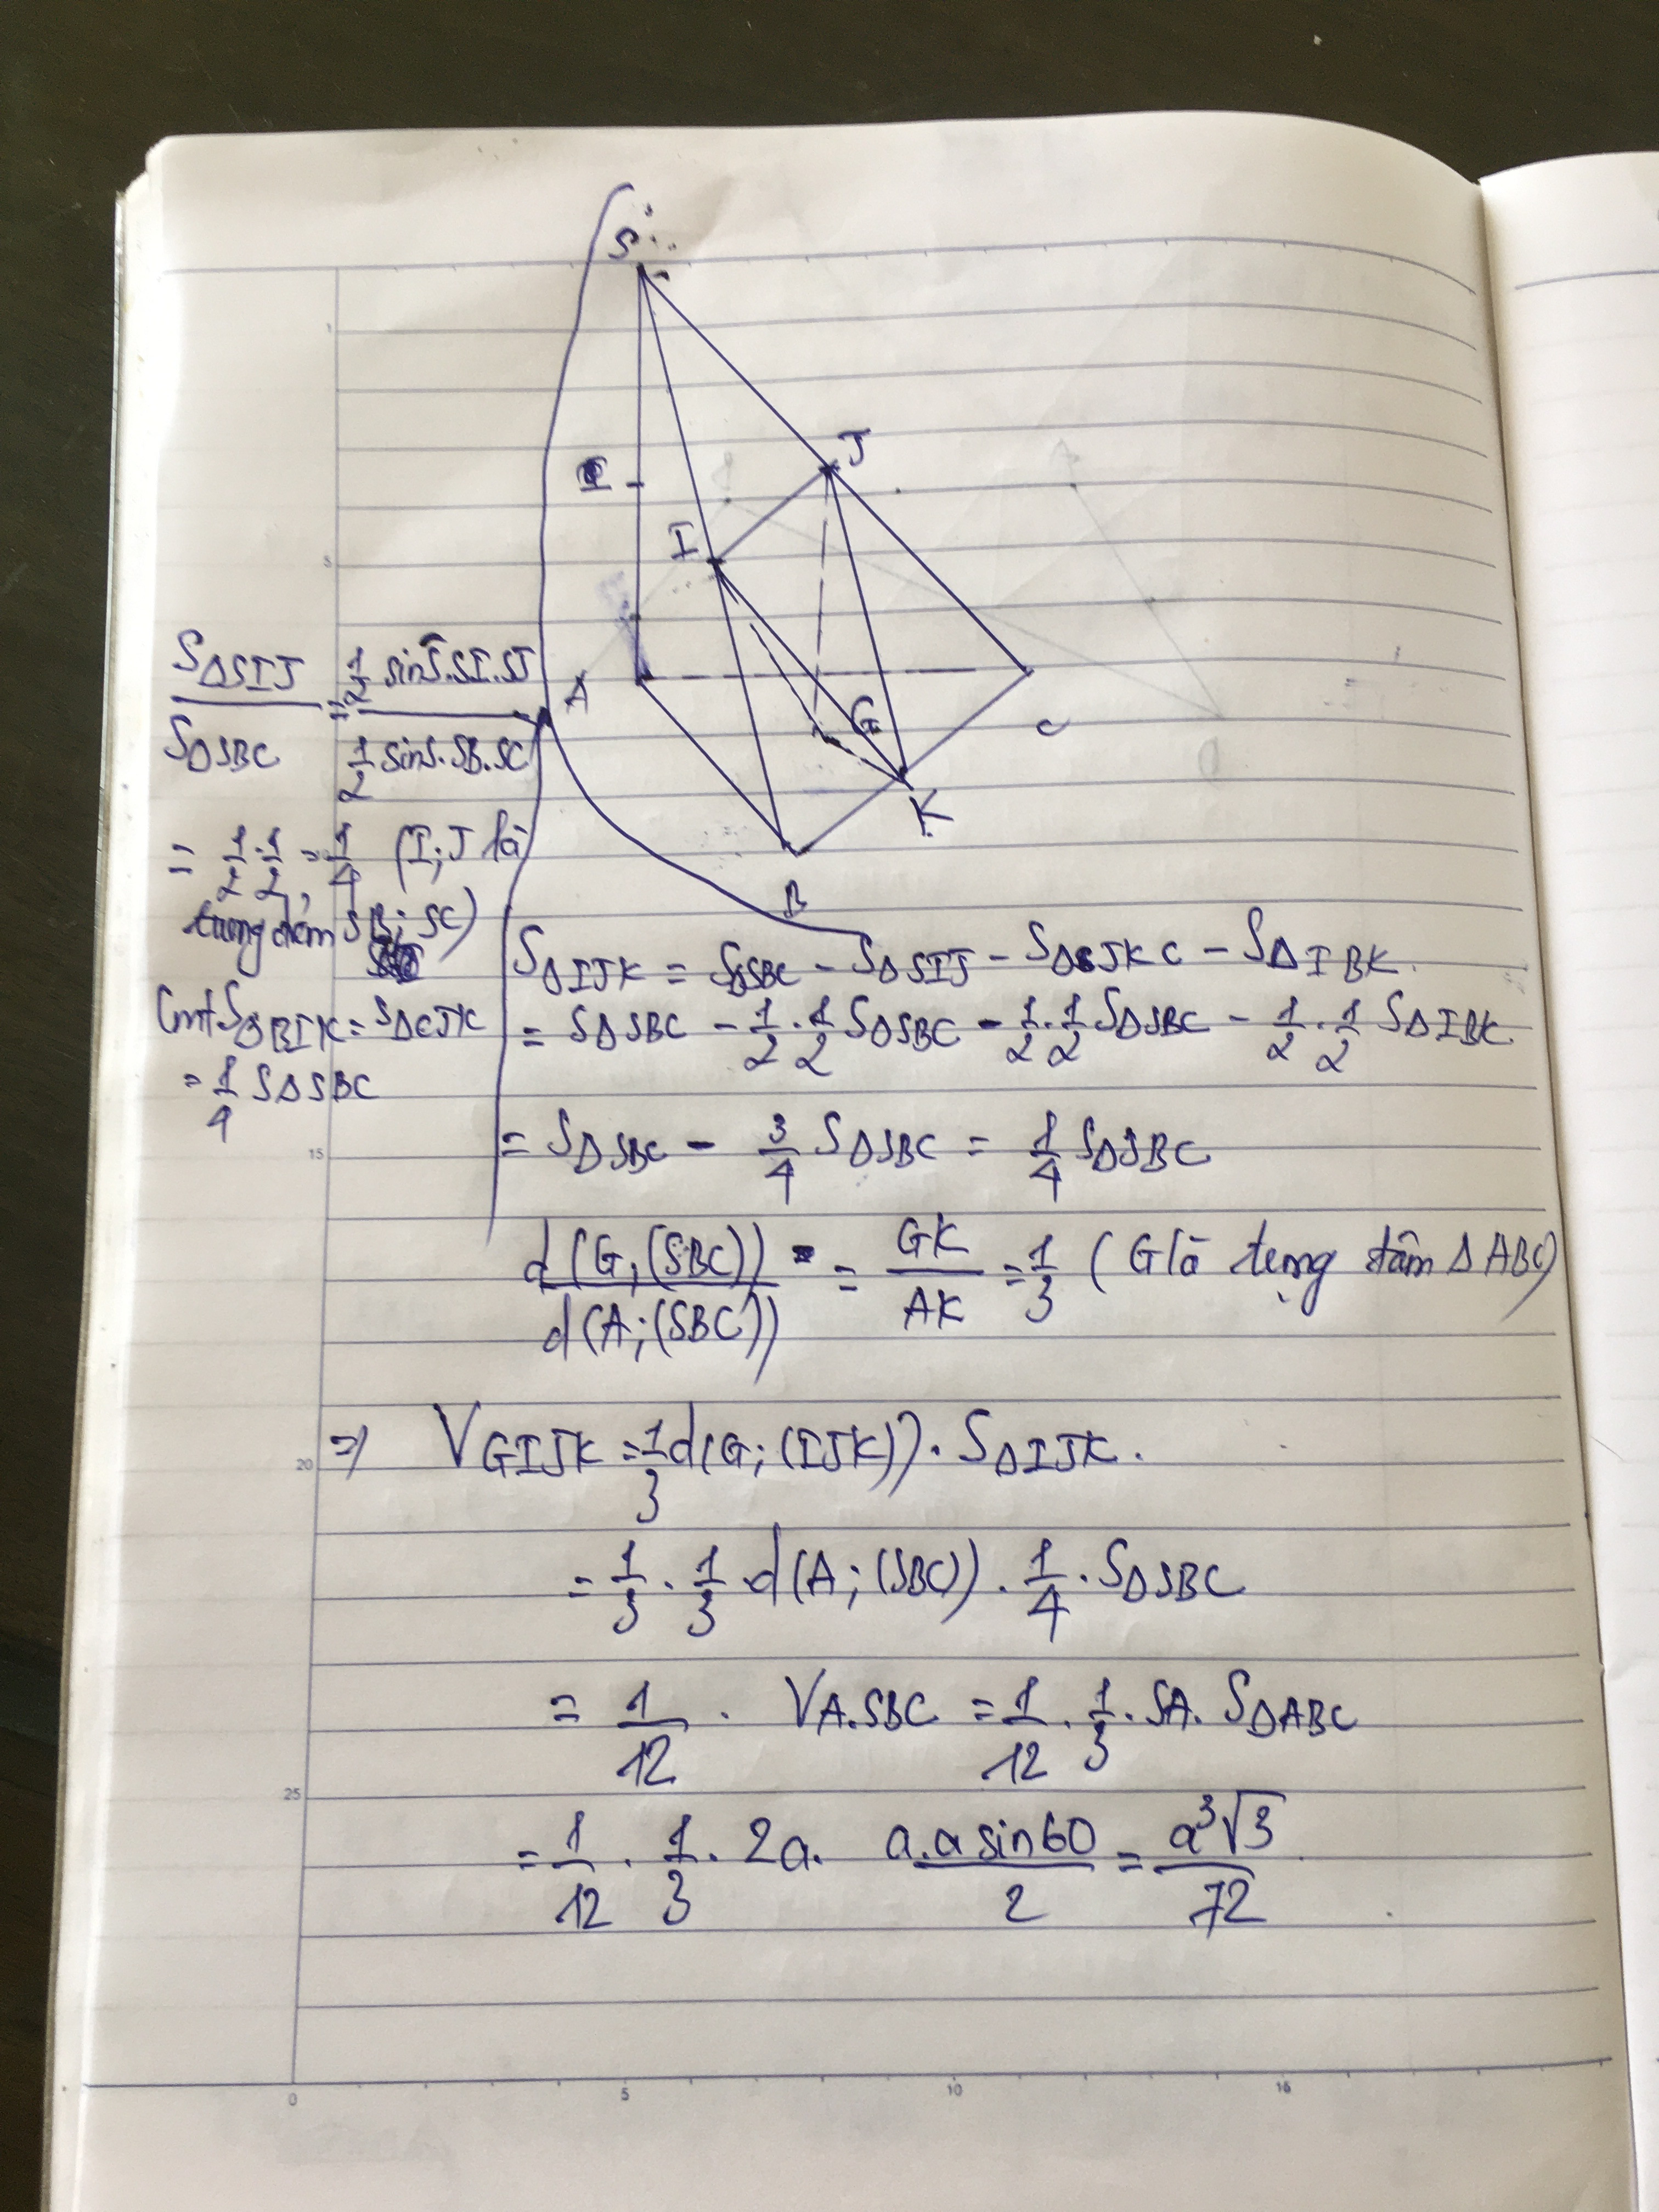 S
J
I
I
A
G
C
K
B
S△SIJ / S△SBC = 1/2 sinS.SI.SJ / 1/2 sinS.SB.SC
= 1/2 . 1/2 = 1/4 (I;J là
trung điểm SB; SC)
Cmt S△BIK = S△CJK
= 1/4 S△SBC
S△IJK = S△SBC - S△SIJ - S△JKC - S△IBK.
= S△SBC - 1/2 . 1/2 S△SBC - 1/2 . 1/2 S△SBC - 1/2 . 1/2 S△IBK
= S△SBC - 3/4 S△SBC = 1/4 S△SBC
d(G,(SBC)) / d(A;(SBC)) = GK / AK = 1/3 (G là trọng tâm △ABC)
=> VGIJK = 1/3 d(G;(IJK)) . S△IJK.
= 1/3 . 1/3 . d(A;(SBC)) . 1/4 . S△SBC
= 1/12 . VA.SBC = 1/12 . 1/3 . SA. S△ABC
= 1/12 . 1/3 . 2a. a.a sin60 / 2 = a³√3 / 72.
1
5
15
20
25
0 5 10 15